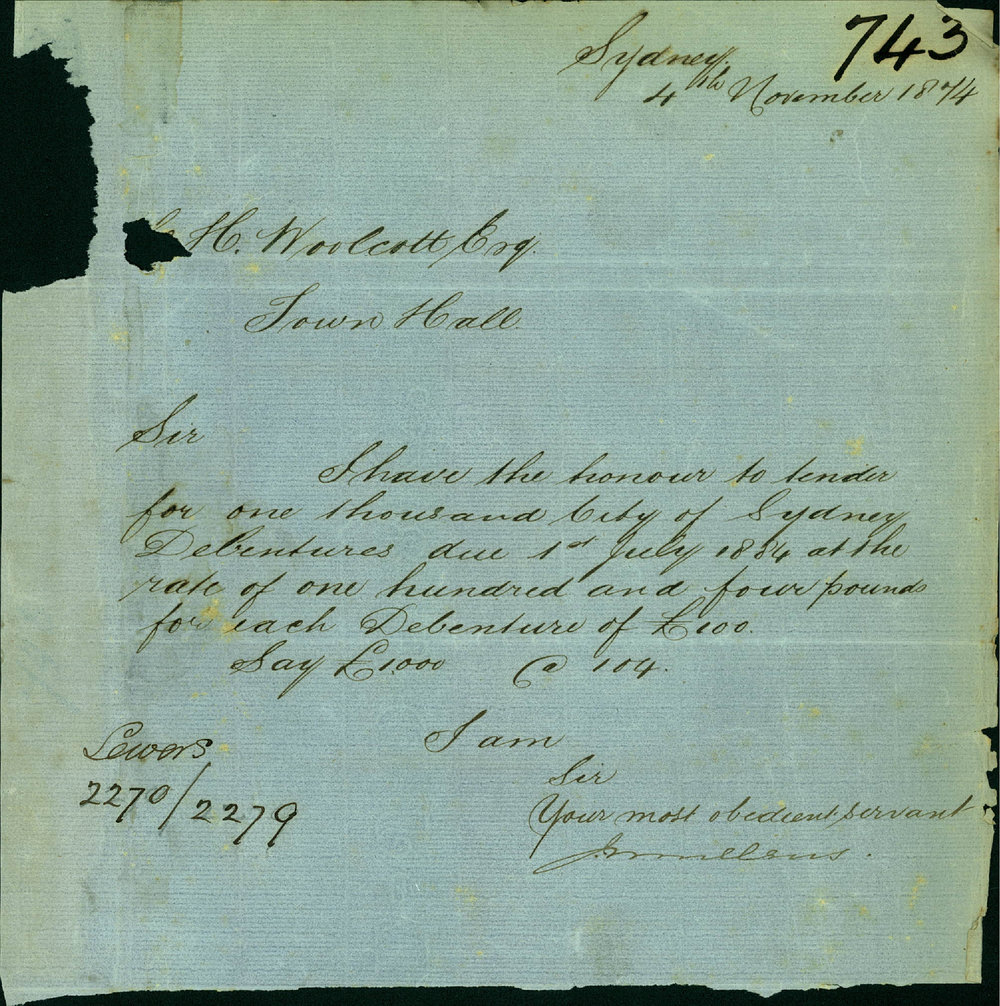 743
Sydney.
4th November 1874
H. Woolcott Esq.
Town Hall.
Sir
I have the honour to tender
for one thousand City of Sydney
Debentures due 1st July 1884 at the
rate of one hundred and four pounds
for each Debenture of £100.
Say £1000 @ 104.
I am
Sir
Your most obedient servant
Lewers
2270/2279